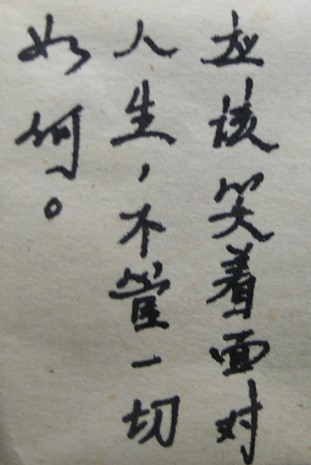 应该笑着面对
人生，不管一切
如何。